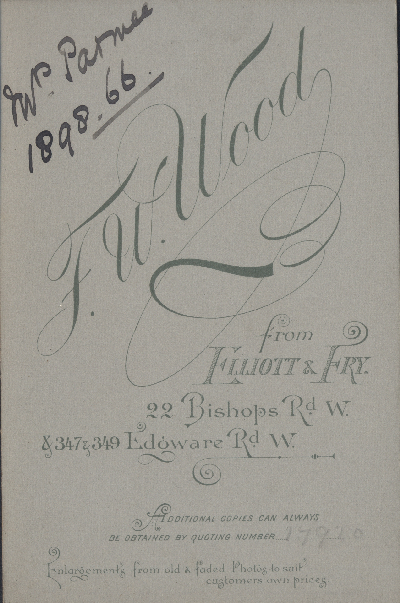 Mr. Parmee
1898. 66.
F. W. Wood
from
ELLIOTT & FRY.
22 Bishops Rd. W.
& 347 & 349 Edgware Rd. W.
ADDITIONAL COPIES CAN ALWAYS
BE OBTAINED BY QUOTING NUMBER
Enlargements from old & faded Photos to suit
customers own prices